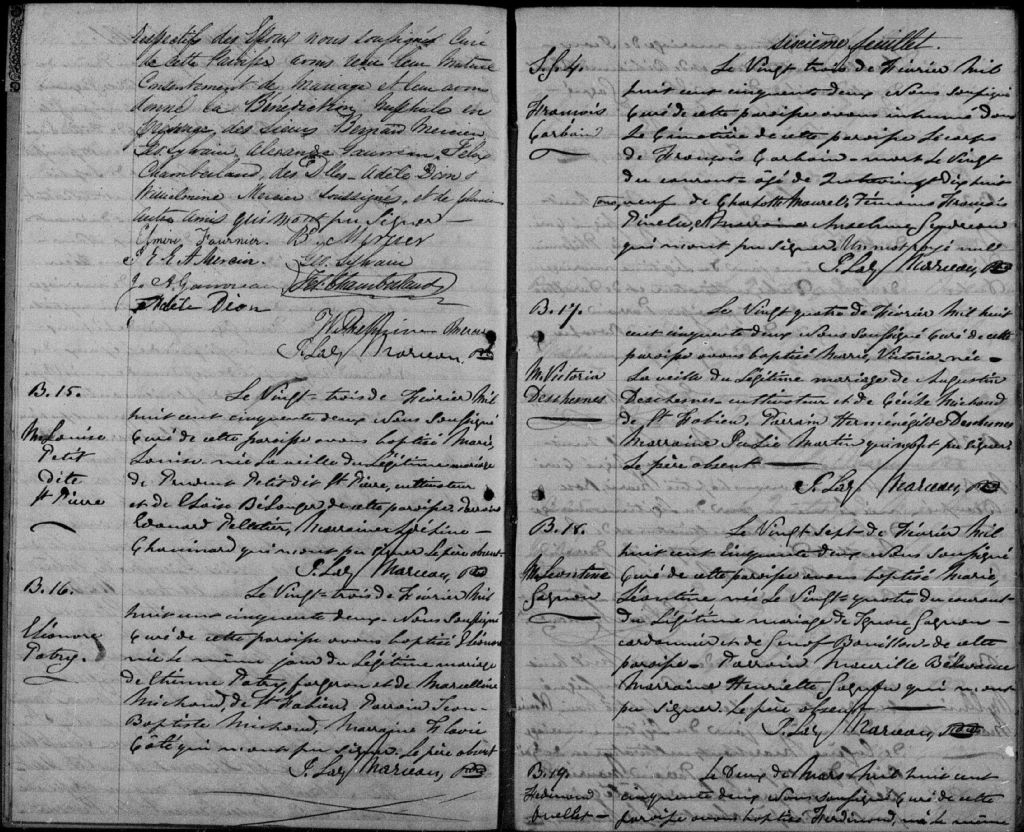 respectifs des Epoux nous soussigné Curé
de cette Paroisse avons reçu leur mutuel
Consentement de mariage et leur avons
donné la Bénédiction nuptiale en
présence des sieurs Bernard Mercier
Geo. Sylvain, Alexandre Gauvreau, Félix
Chamberland, des Dlles. Adèle Dion &
Wilhelmine Mercier Soussignés, et de plusieurs
autres amis qui n'ont pu signer
Elmire Fournier. B. Mercier
J. E. A. Mercier. Geo. Sylvain
J. A. Gauvreau Fx Chamberland
Adèle Dion
Wilhelmine Mercier
J. Laz Marceau, Ptre
B. 15.
M. Louise
Petit
dite
St Pierre
Le Vingt-trois de Février Mil
huit cent cinquante deux Nous Soussigné
Curé de cette paroisse avons baptisé Marie
Louise née La veille du Légitime mariage
de Prudent Petit dit St Pierre, cultivateur
et de Eloïse Bélanger de cette paroisse. Parrain
Edouard Pelletier, Marraine
Chouinard qui n'ont pu signer Le père absent
J. Laz Marceau, Ptre
B. 16.
Eléonore
Patry.
Le Vingt-trois de Février Mil
huit cent cinquante deux. Nous Soussigné
Curé de cette paroisse avons baptisé Eléonore
née Le même jour du Légitime mariage
de Etienne Patry forgeron et de Marcelline
Michaud, de St Fabien Parrain Jean-
Baptiste Michaud, Marraine Flavie
Côté qui n'ont pu signer. Le père absent
J. Laz Marceau, Ptre
sixième feuillet.
S. 4.
François
Gorbain
Le Vingt trois de Février Mil
huit cent cinquante deux Nous Soussigné
Curé de cette paroisse avons inhumé dans
Le Cimetière de cette paroisse Le corps
de François Gorbain mort Le Vingt
du courant âgé de
veuf de Charlotte Maurel, Témoins François
Pinel, et
qui n'ont pu signer. Un mot rayé nul
J. Laz Marceau, Ptre
B. 17.
M. Victoria
Deschesnes
Le Vingt quatre de Février Mil huit
cent cinquante deux Nous Soussigné Curé de cette
paroisse avons baptisé Marie, Victoria née
La veille du Légitime mariage de Augustin
Deschesnes cultivateur et de Cécile Michaud
de St Fabien. Parrain Herménégilde Deschesnes
Marraine Martin qui n'ont pu signer
Le père absent
J. Laz Marceau, Ptre
B. 18.
M. Léontine
Gagnon
Le Vingt sept de Février Mil
huit cent cinquante deux Nous Soussigné
Curé de cette paroisse avons baptisé Marie,
Léontine née Le Vingt-quatre du courant
du Légitime mariage de Ignace Gagnon
cordonnier et de Genof Bouillon de cette
paroisse. Parrain Maurille
Marraine Henriette Gagnon qui n'ont
pu signer. Le père absent
J. Laz Marceau, Ptre
B. 19.
Ferdinand
Ouellet
Le Deux de Mars Mil huit cent
cinquante deux Nous soussigné Curé de cette
paroisse avons baptisé Ferdinand, né Le même